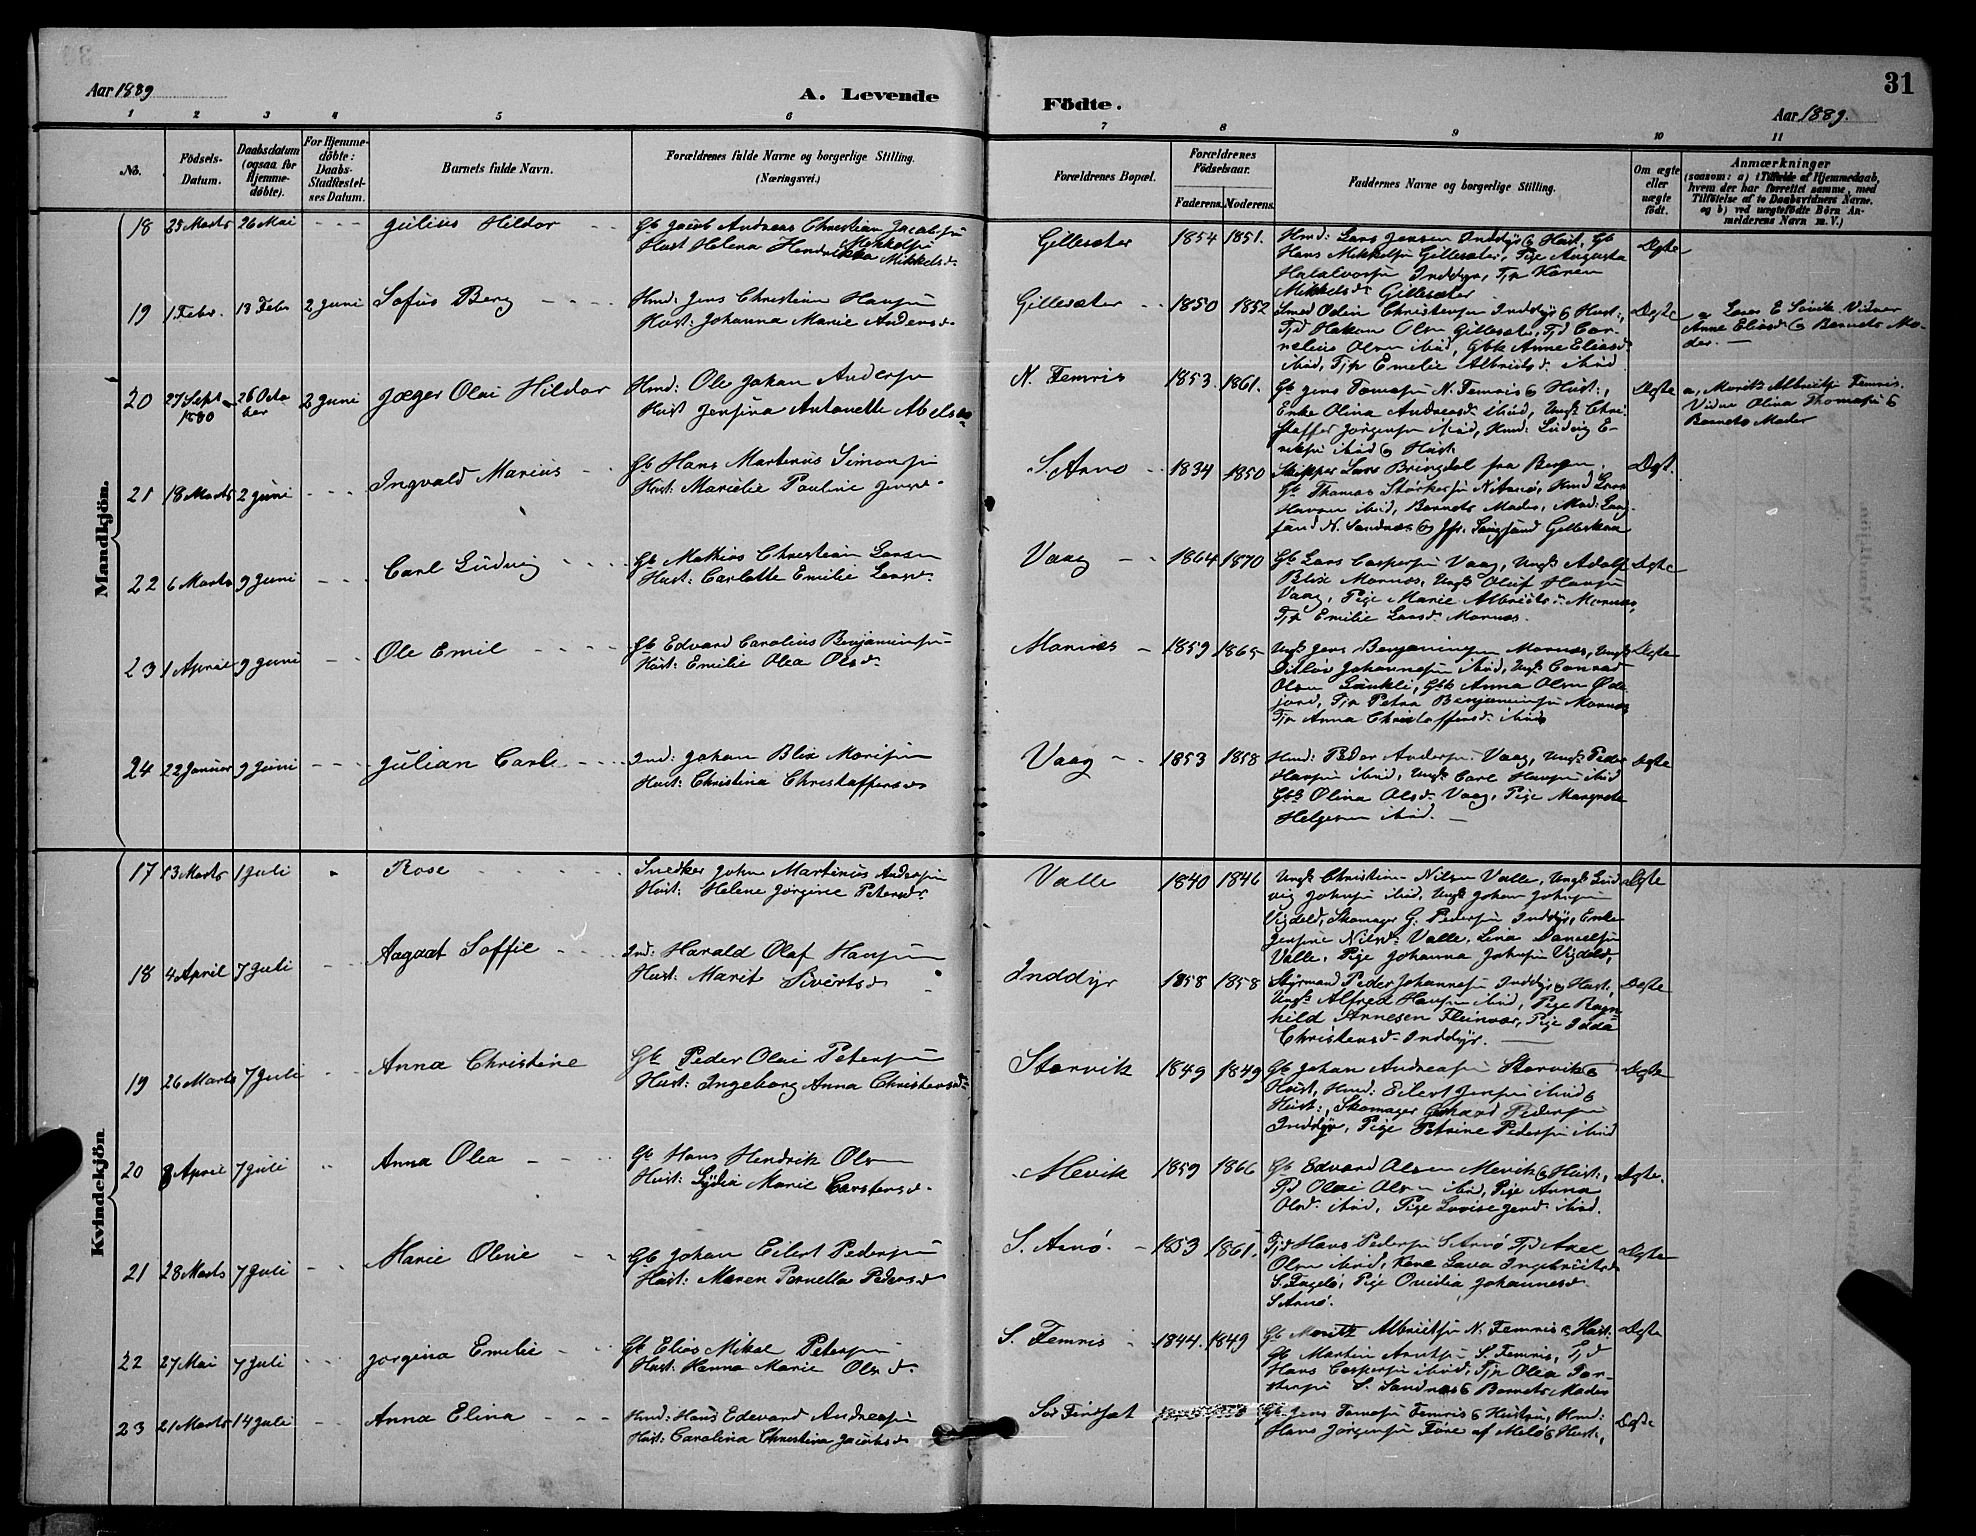 31
Aar 1889
A. Levende
Födte.
Aar 1889.
1 2 3 4 5 6 7 8 9 10 11
No.
Födsels-
Datum.
Daabsdatum
(ogsaa for
Hjemme-
döbte).
For Hjemme-
döbte:
Daabs-
Stadfæstel-
ses Datum.
Barnets fulde Navn.
Forældrenes fulde Navne og borgerlige Stilling.
(Næringsvei.)
Forældrenes Bopæl.
Forældrenes
Födselsaar.
Faderens. Moderens.
Faddernes Navne og borgerlige Stilling.
Om ægte
eller
uægte
födt.
Anmærkninger
(saasom: a) i Tilfælde af Hjemmedaab,
hvem der har forrettet samme, med
Tilföielse af to Daabsvidners Navne,
og b) ved uægtefödte Börn An-
melderens Navn m. V.)
Mandkjön.
18 25 Marts 26 Mai Julius Hildor
Gb Jacob Andreas Christian Jacobsen
Hust Helena Hendrikka Mikkelsd.
Gillesæter 1854 1851.
Hmd: Lars Jensen Inddyr & Hust, Gb
Hans Mikkelsen Gillesæter, Pige Augusta
Inddyr, Tjp Karen
Mikkelsd. Gillesæter
Ægte
19 1 Febr. 18 Febr 2 Juni Sofus Berg
Hmd: Jens Christian Hansen
Hust: Johanna Marie Andersd.
Gillesæter 1850 1852
Smed Odin Christensen Inddyr & Hust:,
Tjd Hakon Olsen Gillesæter, Tjd Cor-
nelius Olsen ibid, Gbk Anne Eliasd.
ibid, Tjp Emilie Albrictsd. ibid
Ægte
a, Lars E Sövik Vidner
Anne Eliasd & Barnets Mo-
der.
20 27 Sept 1880 26 Octo
ber 2 Juni Jæger Olai Hildor
Hmd: Ole Johan Andersen
Hust Jensina Antonette Abelsd.
N. Femris 1853. 1861.
Gb Jens Tomassen N. Femris & Hust:,
Enke Olina Andreasd. ibid, Ungk Chri-
staffer Jörgensen ibid, Hmd: Ludvig E-
riksen ibid & Hust.
Ægte
a, Moritz Albrictsen Femris.
Vidne Olina Thomasen &
Barnets Moder
21 18 Marts 2 Juni Ingvald Marius
Gb Hans Martinus Simonsen
Hust: Marielie Pauline Jensd.
S. Arnö 1834 1850
Skipper Lars Bringdal fra Bergen,
Gb Thomas Störkersen N Arnö, Hmd Lars
Hansen ibid, Barnets Moder, Mad: Lang-
sund N. Sandnæs & Jfr. Langsund Gilleskaa
Ægt.
22 6 Marts 9 Juni Carl Ludvig
Gb Mathias Christian Larsen
Hust: Carlotte Emilie Larsd.
Vaag 1864 1870
Gb Lars Caspersen Vaag, Ungk Adolf
Blix Mornæs, Ungk Oluf Hansen
Vaag, Pige Marie Albrictsd. Mornæs,
Tjp Emilie Larsd. Mornæs.
Ægte
23 1 April 9 Juni Ole Emil
Gb Edvard Carolius Benjaminsen
Hust: Emilie Olea Olsd.
Mornæs 1859 1865
Ungk Jens Benjaminsen Mornæs, Ungk
Ditlöv Johannesen ibid, Ungk Conrad
Olsen Laukli, Gbk Anna Olsen Øde-
jord, Tjp Petra Benjaminsen Mornæs
Tjp Anna Christoffersd. ibid
Ægte
24 22 Januar 9 Juni Julian Carl
Ind: Johan Blix Morisen
Hust: Christina Christoffersd.
Vaag 1853 1858
Hmd: Peder Andersen Vaag, Ungk Peder
Hansen ibid, Ungk Carl Hansen ibid
Gbk Olina Olsd. Vaag, Pige Margrete
Helgesen ibid.
Ægte
Kvindekjön
17 13 Marts 1 Juli Rose
Snedker John Martinus Andersen
Hust: Helene Jörgine Petersd.
Valle 1840 1846
Ungk Christian Nilsen Valle, Ungk Lud-
vig Johnsen ibid, Ungk Johan Johnsen
Vigdel, Skomager G. Pedersen Inddyr, Enke
Jensine Nilsd. Valle, Lina Danielsen
Valle, Pige Johanna Johnsen Vigdel,
Ægte
18 4 April 7 Juli Aagaat Soffie
Ind: Harald Olaf Hansen
Hust: Marit Sivertsd.
Inddyr 1858 1858
Styrmand Peder Johannesen Inddyr & Hust,
Ungk Alfred Hansen ibid, Pige Ragn-
hild Arnesen Fleinvær, Pige Idda
Christensd. Inddyr.
Ægte
19 26 Marts 7 Juli Anna Christine
Gb Peder Olai Petersen
Hust: Ingeborg Anna Christensd.
Storvik 1849 1849
Gb Johan Andreasen Storvik &
Hust, Hmd: Eilert Jensen ibid &
Hust:, Skomager Gerhard Pedersen
Inddyr, Pige Petrine Pedersen ibid
Ægte
20 8 April 7 Juli Anna Olea
Gb Hans Hendrik Olsen
Hust: Lydia Marie Carstensd.
Mevik 1859 1866
Gb Edvard Olsen Mevik & Hust:,
Tjd Olai Olsen ibid, Pige Anna
Olsd. ibid, Pige Lovise Jensd. ibid.
Ægte.
21 28 Marts 7 Juli Marie Oline
Gb Johan Eilert Pedersen
Hust: Maren Pernella Pedersd.
S. Arnö. 1853 1861.
Tjd Hans Pedersen S Arnö Tjd Axel
Olsen ibid, Kone Lava Ingebrictsd.
S. Fugelö, Pige Johannesd.
S Arnö.
Ægte
22 27 Mai 7 Juli Jorgina Emilie
Gb Elias Mikal Petersen
Hust: Hanna Marie Olsd.
S. Femris 1844. 1849
Gb Moritz Albrictsen N. Femris & Hust.
Gb Martin Arntsen S. Femris, Tjd
Hans Caspersen ibid, Tjp Olea Tor-
stensen S. Sandnæs & Barnets Moder
Ægte
23 21 Marts 14 Juli Anna Elina
Hmd: Hans Edevard Andreasen
Hust: Carolina Christina Jacobsd.
Sör Findset
Gb Jens Tomasen Femris & Hustru, Hmd:
Hans Jörgensen Före af Melö & Hust:,
Ægte